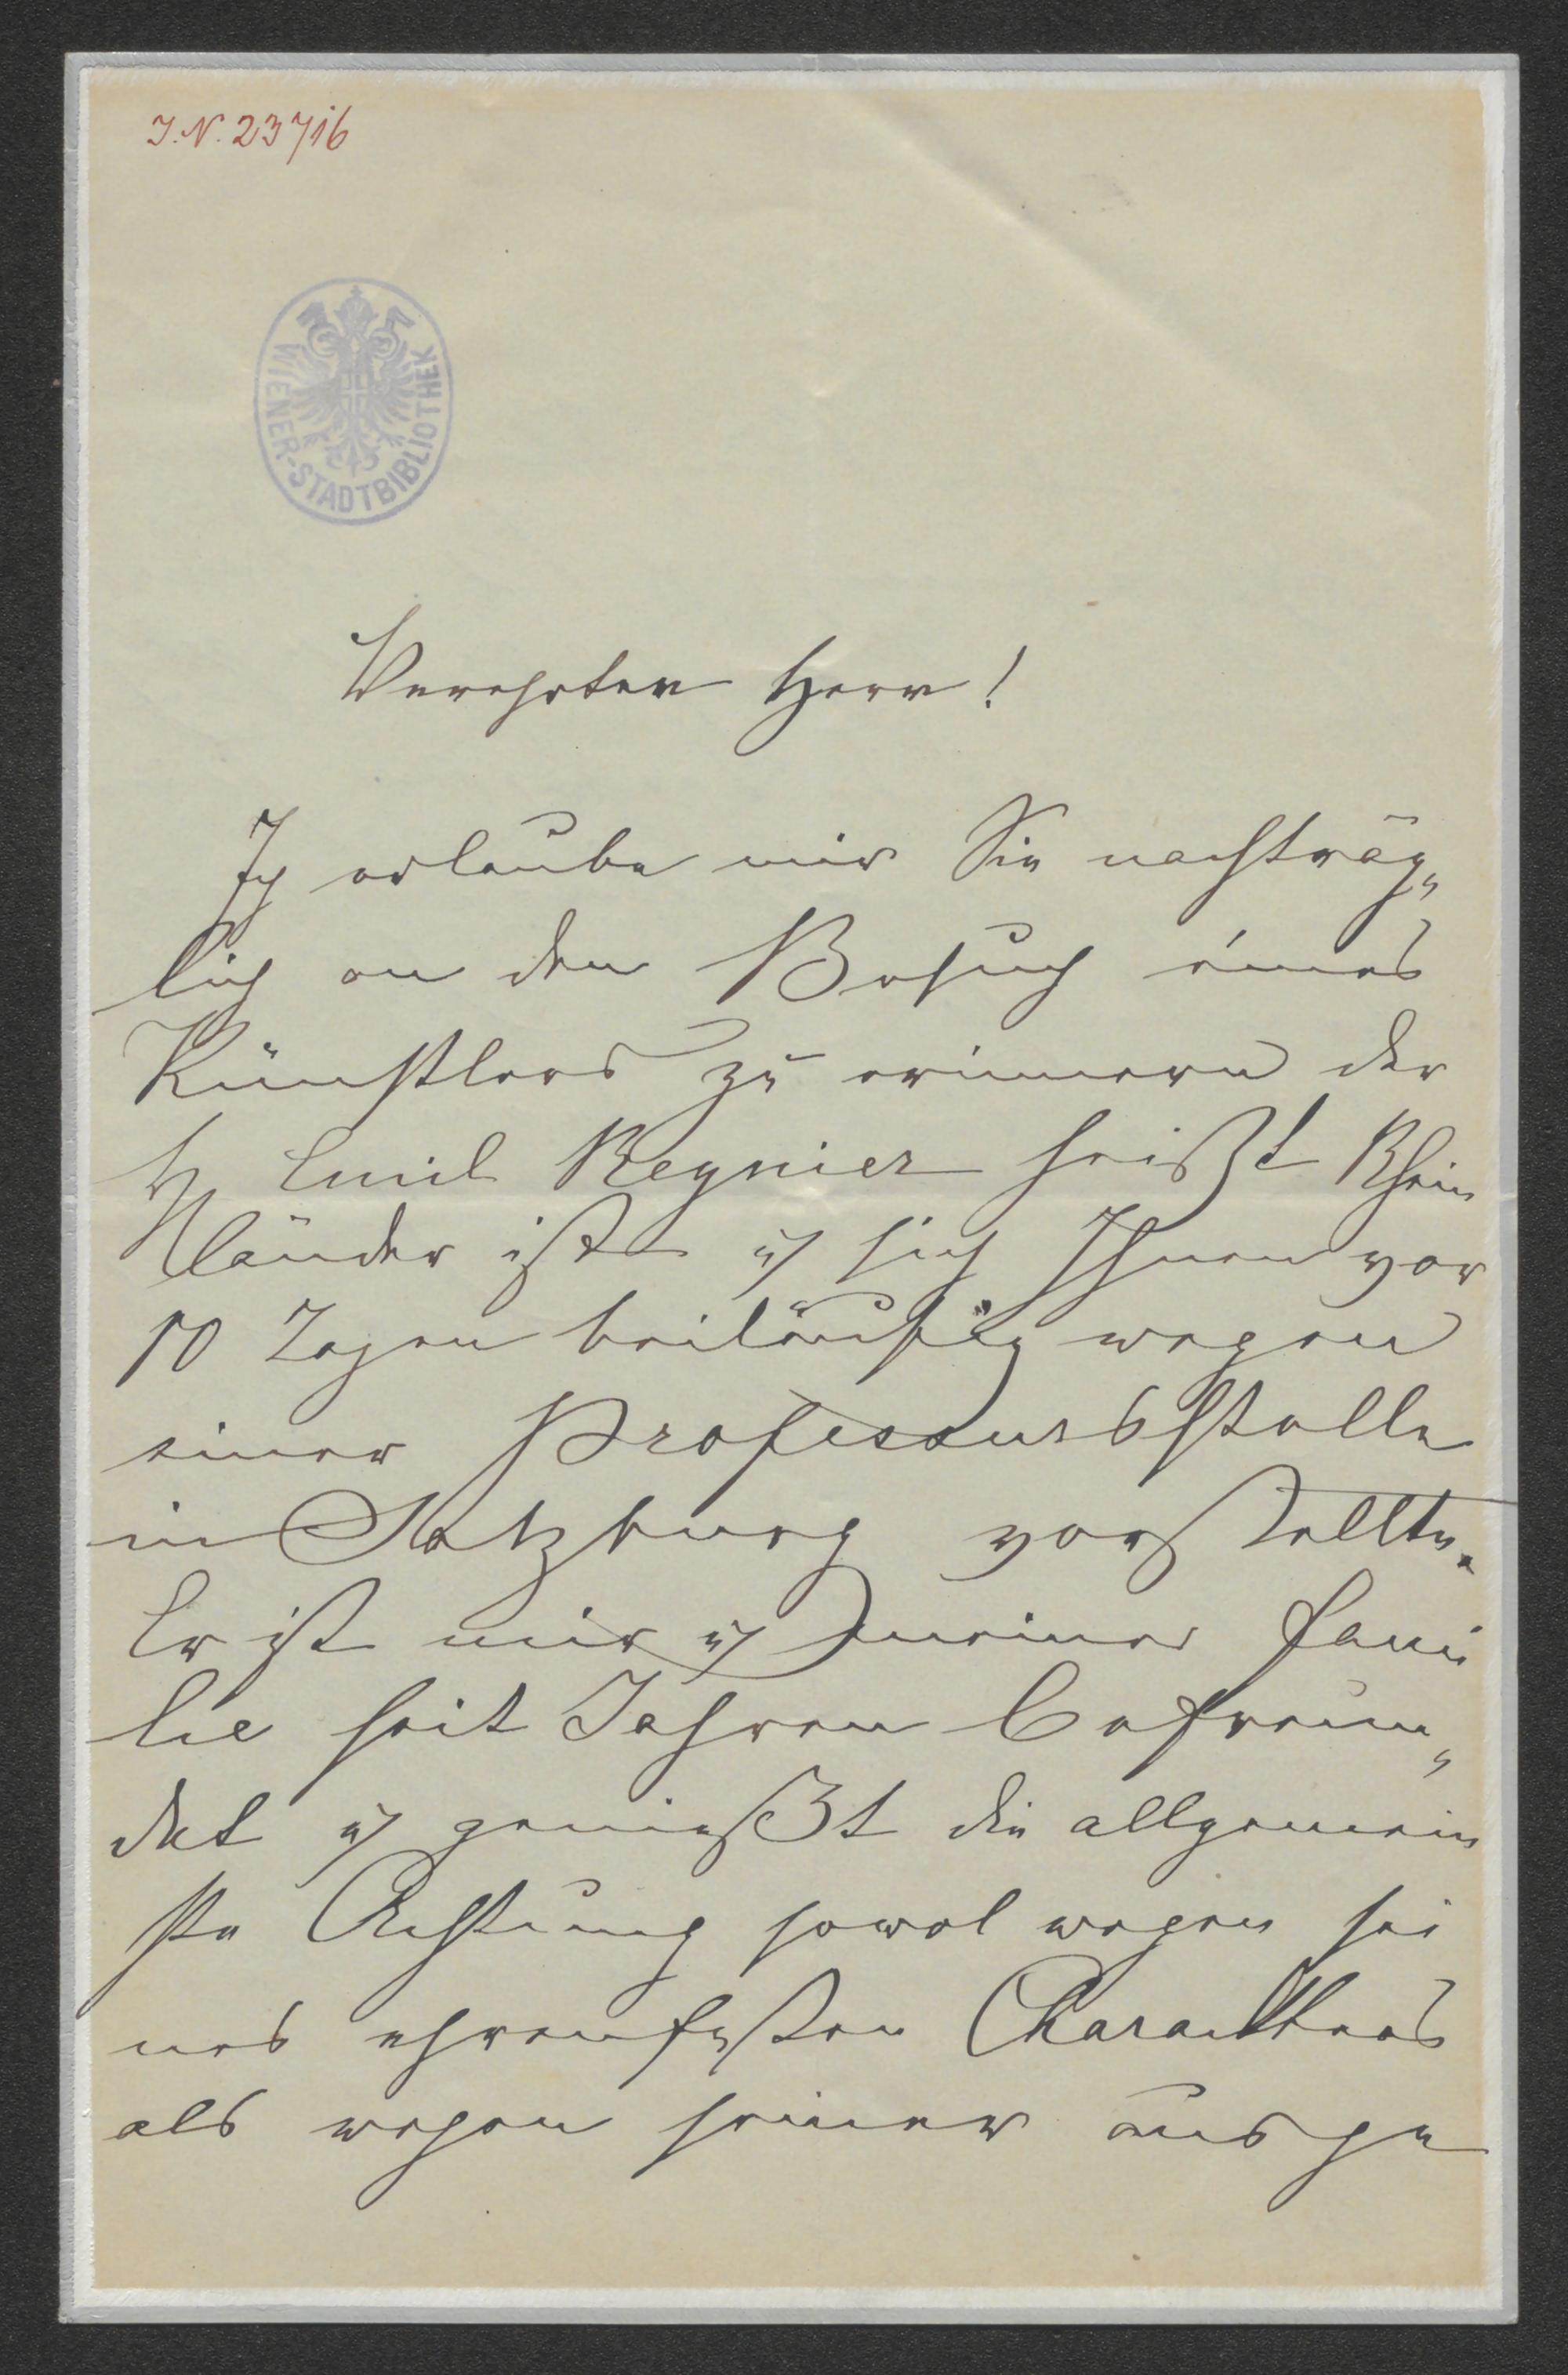 I.N. 23716
WIENER-STADTBIBLIOTHEK
Verehrter Herr!
Ich erlaube mir Sie nachträg„
lich an den Besuch eines
Künstlers zu erinnern der
H Emil Regnier heißt Rhein
länder ist u sich Ihnen vor
10 Tagen beiläufig wegen
einer Professursstelle
in Salzburg vorstellte.
Er ist mir u meiner Fami
lie seit Jahren befreun„
det u genießt die allgemein
ste Achtung sowol wegen sei
nes ehrenfesten Charackters
als wegen seiner ausge